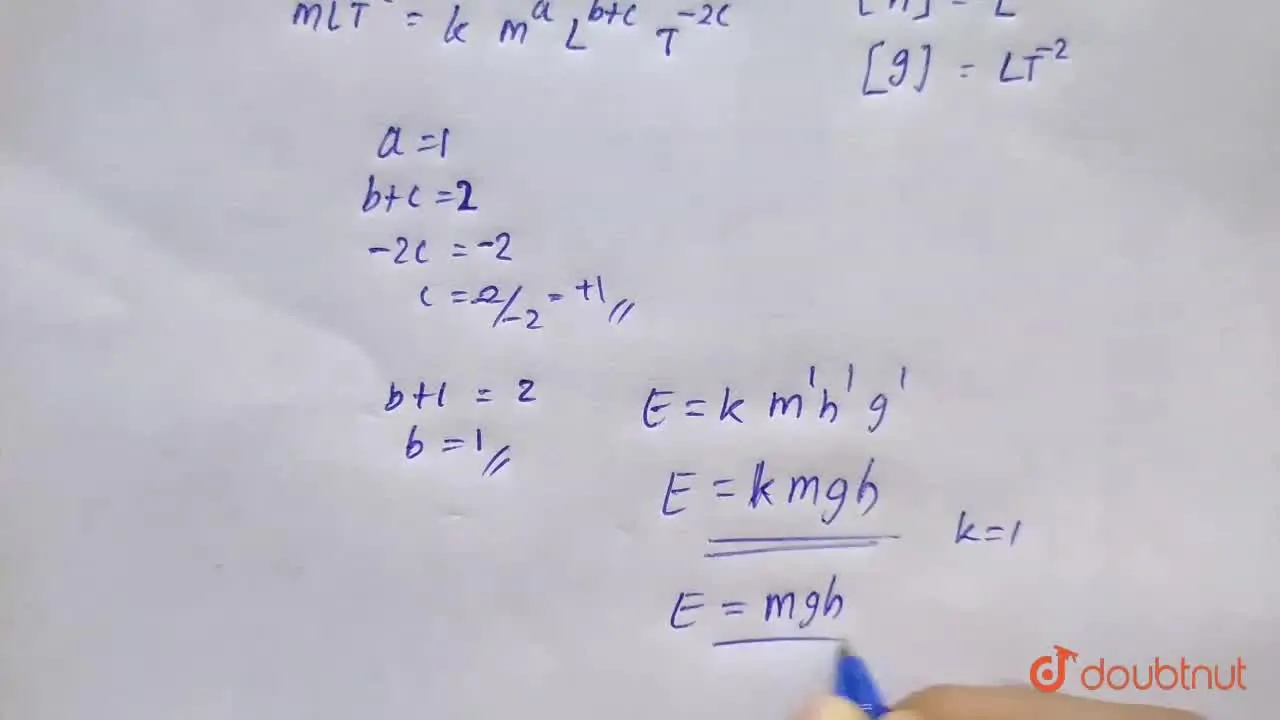 MLT = k m^a L^{b+c} T^{-2c}
[h] = L
[g] = LT^{-2}
a = 1
b+c = 2
-2c = -2
c = -2/-2 = +1 //
b+1 = 2
b = 1 //
E = k m^1 h^1 g^1
E = k mgh
k = 1
E = mgh
doubtnut